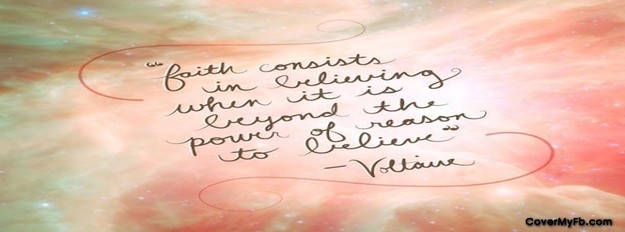 “faith consists
in believing
when it is
beyond the
power of reason
to believe”
—Voltaire
CoverMyFb.com